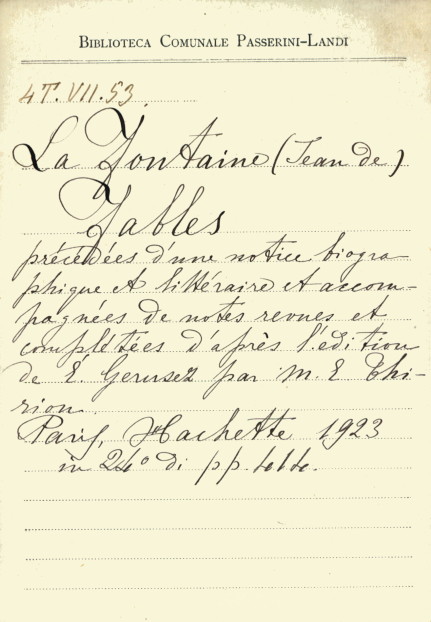 BIBLIOTECA COMUNALE PASSERINI-LANDI
4T.VII.53.
La Fontaine (Jean de)
Fables
précédées d'une notice biogra-
phique et littéraire et accom-
pagnées de notes revues et
complétées d'après l'édition
de E. Gerusez par M. E Thi-
rion.
Paris, Hachette 1923
in 24° di pp.